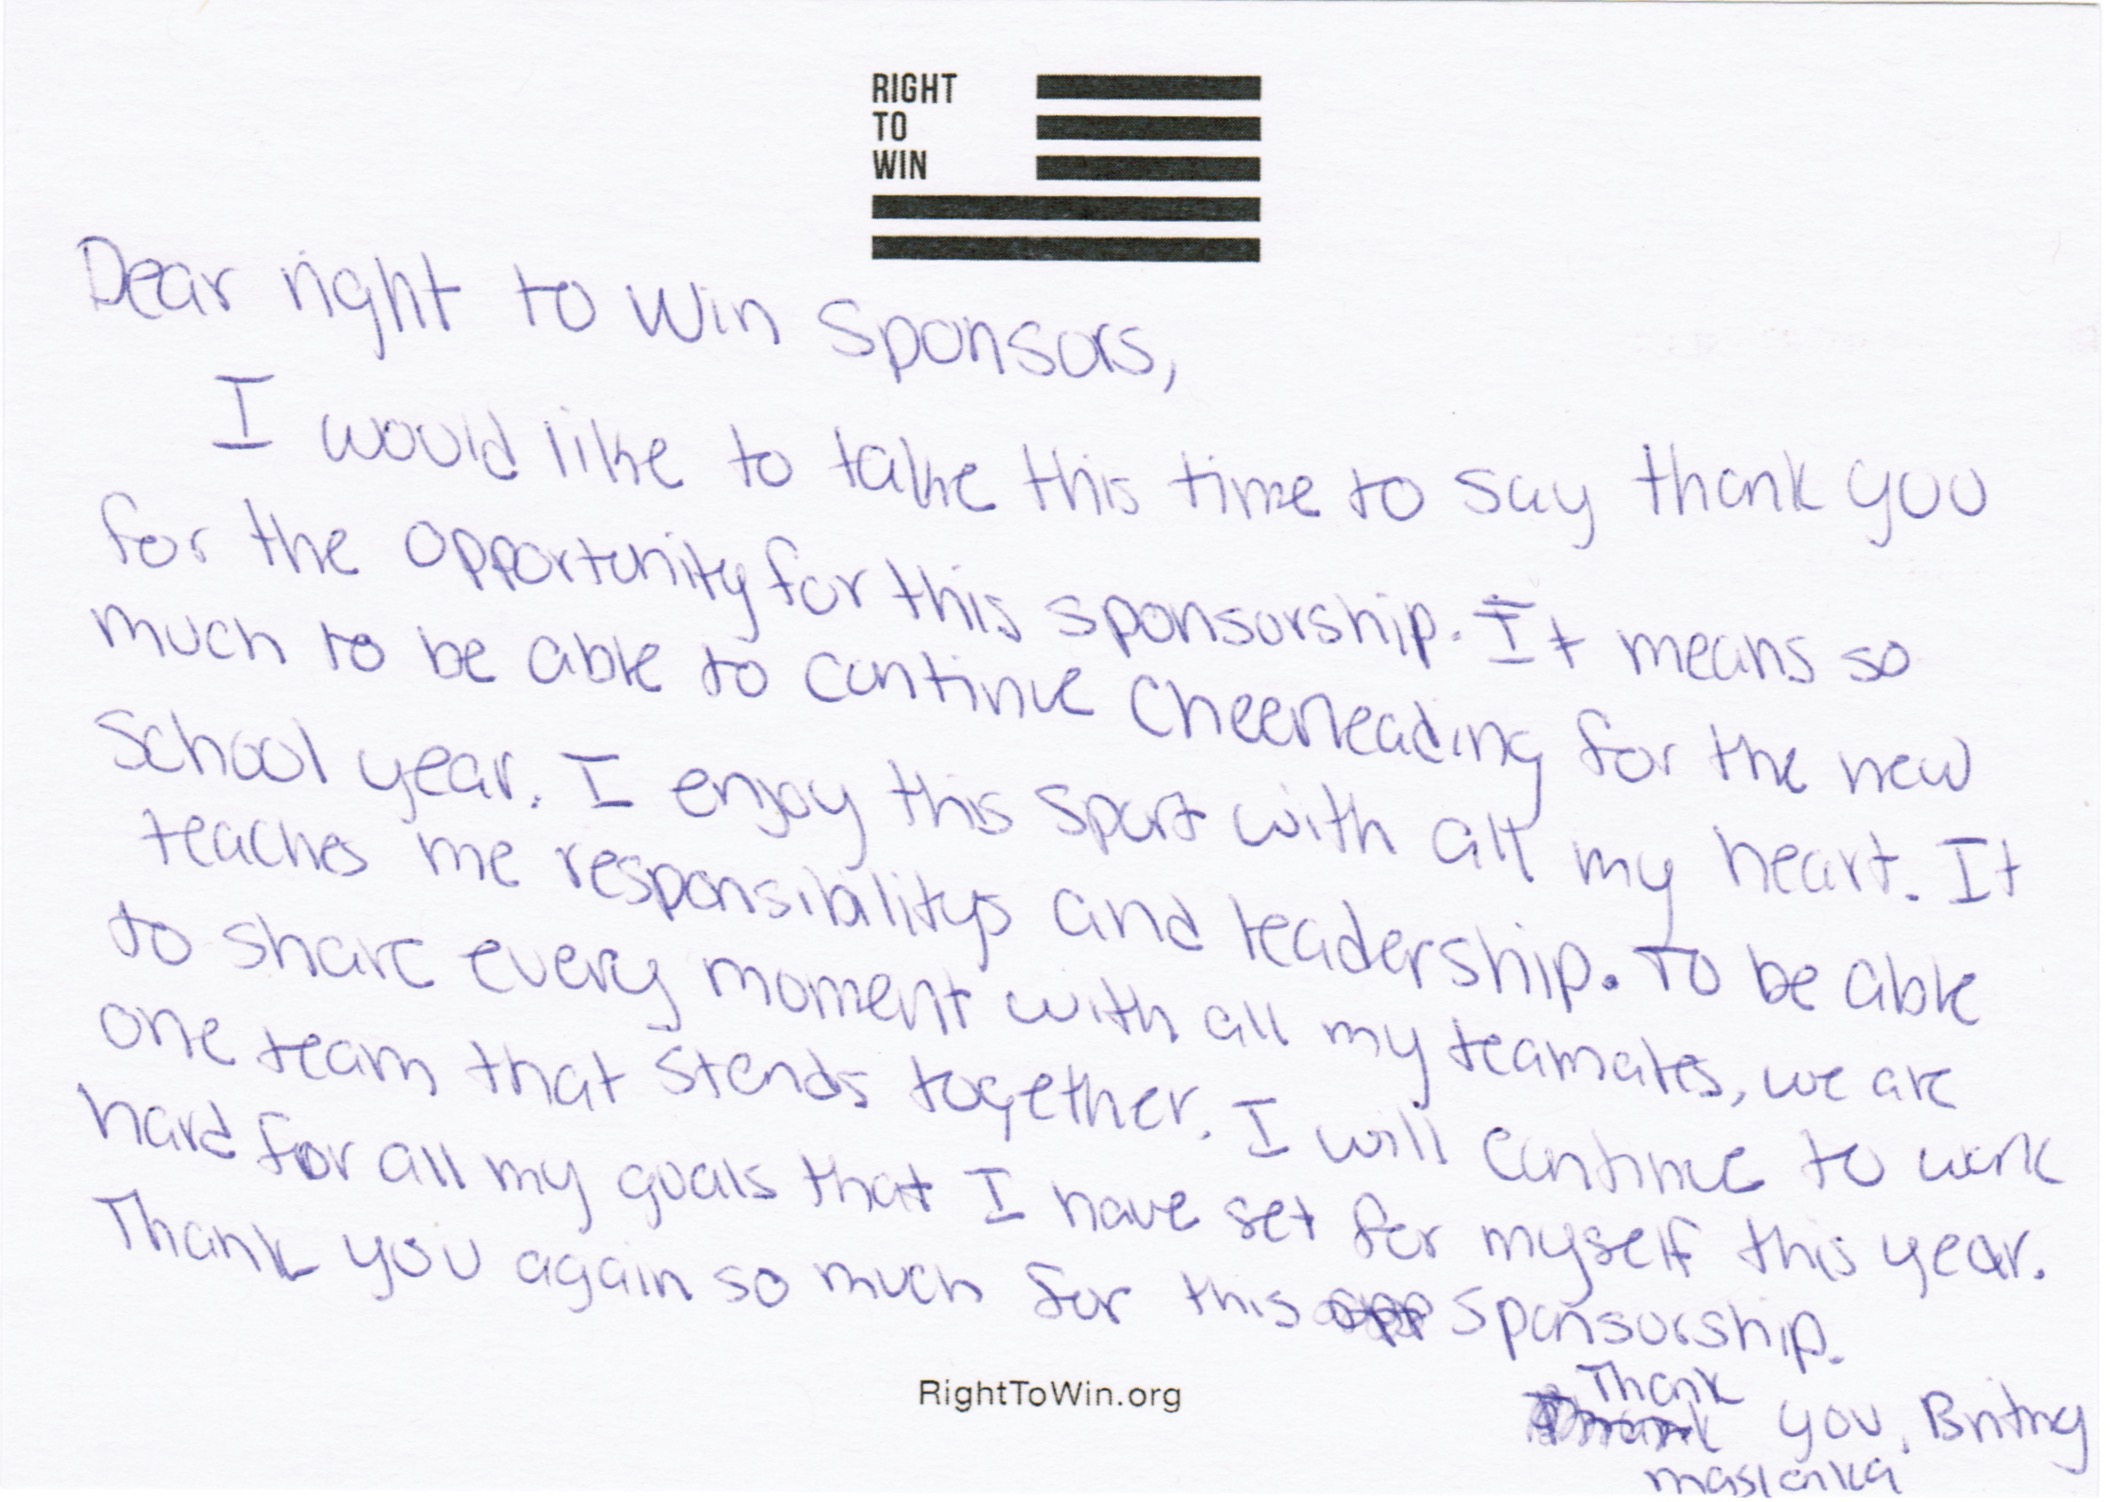 RIGHT
TO
WIN
Dear right to Win Sponsors,
I would like to take this time to say thank you
for the opportunity for this sponsorship. It means so
much to be able to continue Cheerleading for the new
School year. I enjoy this sport with all my heart. It
teaches me responsibilitys and leadership. To be able
to share every moment with all my teamates, we are
one team that stands together. I will continue to work
hard for all my goals that I have set for myself this year.
Thank you again so much for this opp sponsorship.
Thank
Thank you, Britny
RightToWin.org